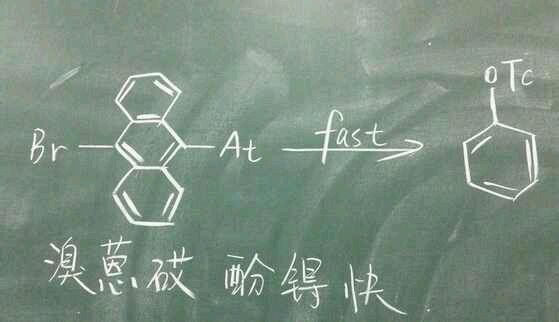 Br At fast OTc
溴蒽砹 酚锝快